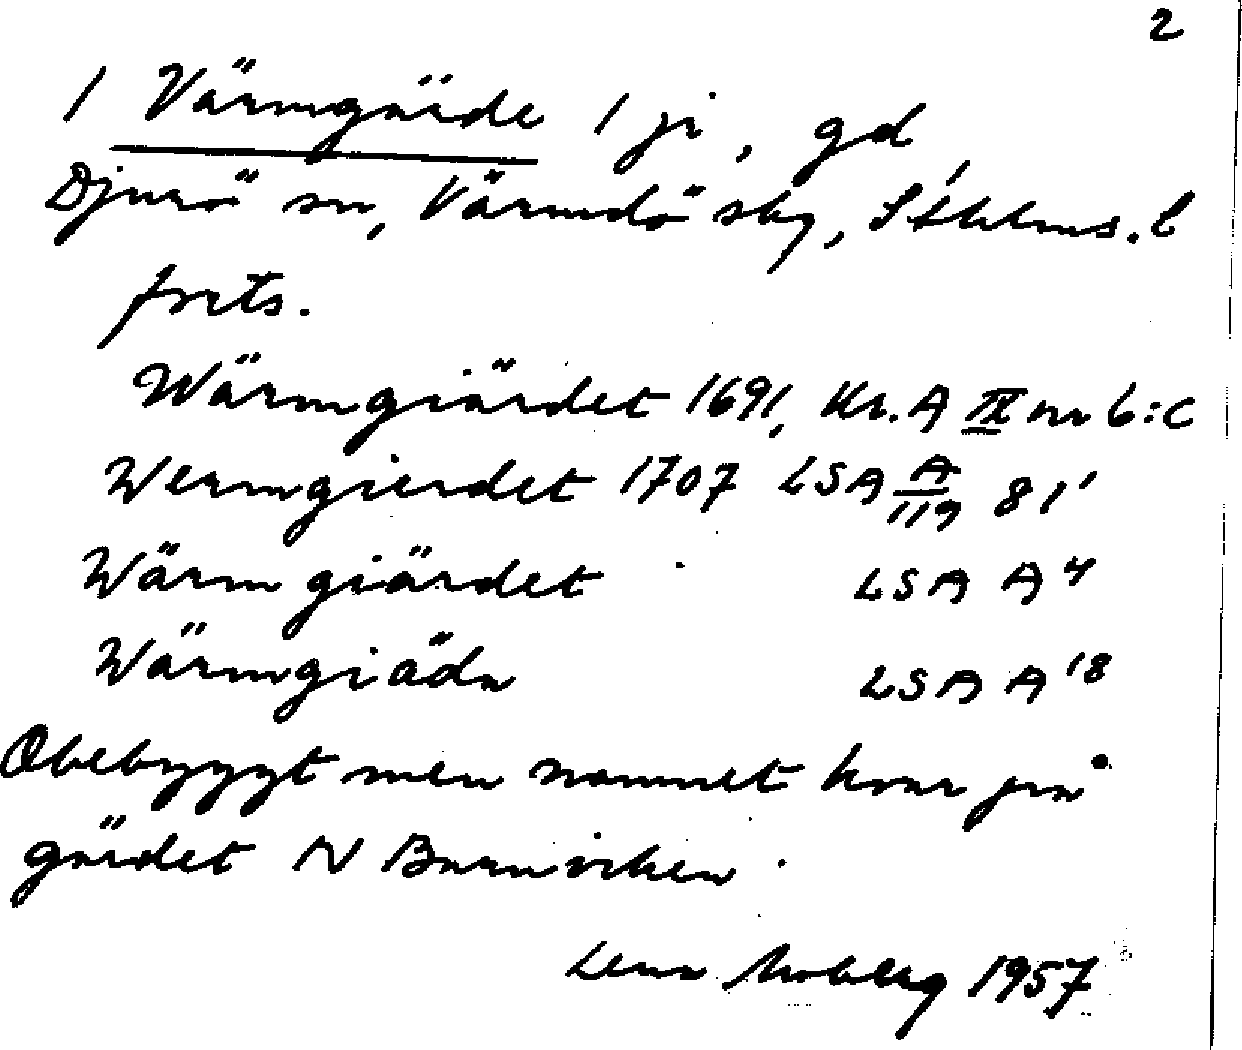 2
/ Värmgärde / ji, gd,
Djurö sn, Värmdö skg, Sthlms. l
forts.
Wärmgiärdet 1691, Kr. A IX nr 6:c
Wermgierdet 1707 LSA A/119 81'
Wärm giärdet LSA A 4
Wärmgiäda LSA A 18
Obebyggt men namnet kvar på
gärdet N Barnviken
Lena Moberg 1957